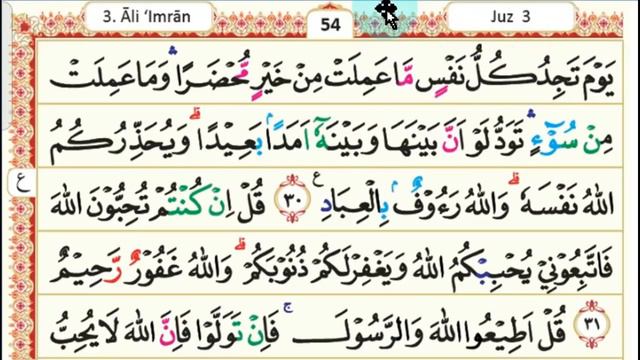 3. Āli ‘Imrān 54 Juz 3
يَوْمَ تَجِدُ كُلُّ نَفْسٍ مَّا عَمِلَتْ مِنْ خَيْرٍ مُّحْضَرًا ۛ وَمَا عَمِلَتْ
مِنْ سُوْٓءٍ ۛ تَوَدُّ لَوْ اَنَّ بَيْنَهَا وَبَيْنَهٗٓ اَمَدًاۢ بَعِيْدًا ۗ وَيُحَذِّرُكُمُ
ع
اللّٰهُ نَفْسَهٗ ۗ وَاللّٰهُ رَءُوْفٌۢ بِالْعِبَادِ ࣖ ٣٠ قُلْ اِنْ كُنْتُمْ تُحِبُّوْنَ اللّٰهَ
فَاتَّبِعُوْنِيْ يُحْبِبْكُمُ اللّٰهُ وَيَغْفِرْ لَكُمْ ذُنُوْبَكُمْ ۗ وَاللّٰهُ غَفُوْرٌ رَّحِيْمٌ
٣١ قُلْ اَطِيْعُوا اللّٰهَ وَالرَّسُوْلَ ۚ فَاِنْ تَوَلَّوْا فَاِنَّ اللّٰهَ لَا يُحِبُّ